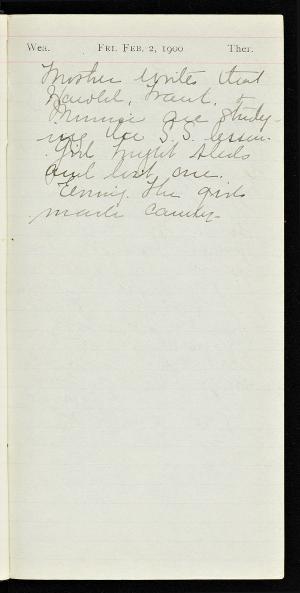 Wea. FRI. FEB. 2, 1900 Ther.
Mother writes that
Harold, Frank, +
Minnie are study-
ing the S.S. lesson.
Girls bought sleds
and lost one.
Evening. The girls
made candy.